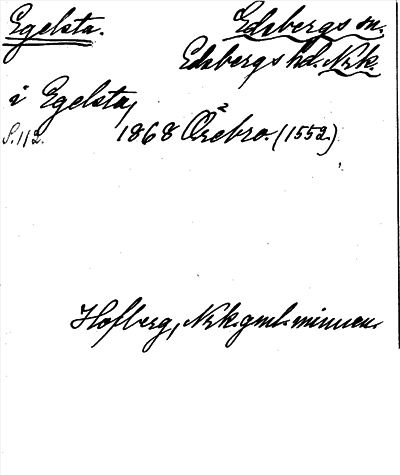 Egelsta. Edsbergs sn.
Edsbergs hd. Nrk.
i Egelsta,
S. 112. 1868 Örebro² (1552)
Hofberg, Nrk. gml. minnen.